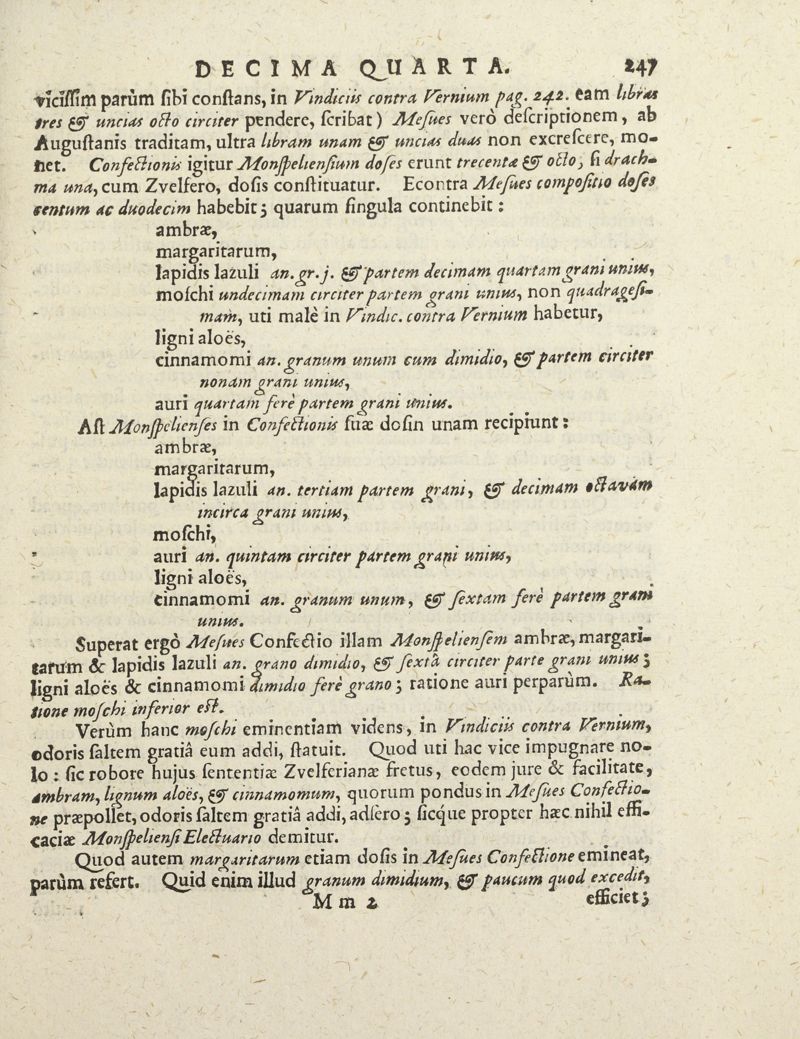 DECIMA QUARTA. 247
viciſſim parùm ſibi conſtans, in Vindiciis contra Vernium pag. 242. eam libras
tres & uncias octo circiter pendere, ſcribat) Meſues verò deſcriptionem, ab
Auguſtanis traditam, ultra libram unam & uncias duas non excreſcere, mo-
net. Confectionis igitur Monſpelienſium doſes erunt trecentæ & octo, ſi drach-
ma una, cum Zvelfero, doſis conſtituatur. Econtra Meſues compoſitio doſes
centum ac duodecim habebit; quarum ſingula continebit:
ambræ,
margaritarum,
lapidis lazuli an. gr. j. & partem decimam quartam grani unius,
moſchi undecimam circiter partem grani unius, non quadrageſi-
mam, uti malè in Vindic. contra Vernium habetur,
ligni aloës,
cinnamomi an. granum unum cum dimidio, & partem circiter
nonam grani unius,
auri quartam ferè partem grani unius.
Aſt Monſpelienſes in Confectionis ſuæ doſin unam recipiunt:
ambræ,
margaritarum,
lapidis lazuli an. tertiam partem grani, & decimam octavam
incirca grani unius,
moſchi,
auri an. quintam circiter partem grani unius,
ligni aloës,
cinnamomi an. granum unum, & ſextam ferè partem grani
unius.
Superat ergò Meſues Confectio illam Monſpelienſem ambræ, margari-
tarum & lapidis lazuli an. grano dimidio, & ſextâ circiter parte grani unius;
ligni aloës & cinnamomi dimidio ferè grano; ratione auri perparùm. Ra-
tione moſchi inferior eſt.
Verùm hanc moſchi eminentiam videns, in Vindiciis contra Vernium,
odoris ſaltem gratiâ eum addi, ſtatuit. Quod uti hac vice impugnare no-
lo: ſic robore hujus ſententiæ Zvelferianæ fretus, eodem jure & facilitate,
ambram, lignum aloës, & cinnamomum, quorum pondus in Meſues Confectio-
ne præpollet, odoris ſaltem gratiâ addi, adſero; ſicq́ue propter hæc nihil effi-
caciæ Monſpelienſi Electuario demitur.
Quod autem margaritarum etiam doſis in Meſues Confectione emineat,
parùm refert. Quid enim illud granum dimidium, & paucum quod excedit,
M m 2 efficiet;